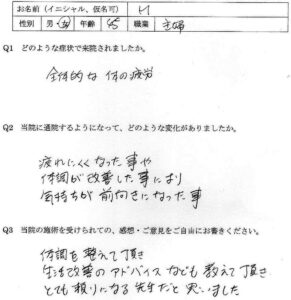 お名前（イニシャル、仮名可） H
性別 男・女 年齢 45 職業 主婦
Q1 どのような症状で来院されましたか。
全体的な体の疲労
Q2 当院に通院するようになって、どのような変化がありましたか。
疲れにくくなった事や
体調が改善した事により
気持ちが前向きになった事
Q3 当院の施術を受けられての、感想・ご意見をご自由にお書きください。
体調を整えて頂き
生活改善のアドバイスなども教えて頂き
とても頼りになる先生だと思いました